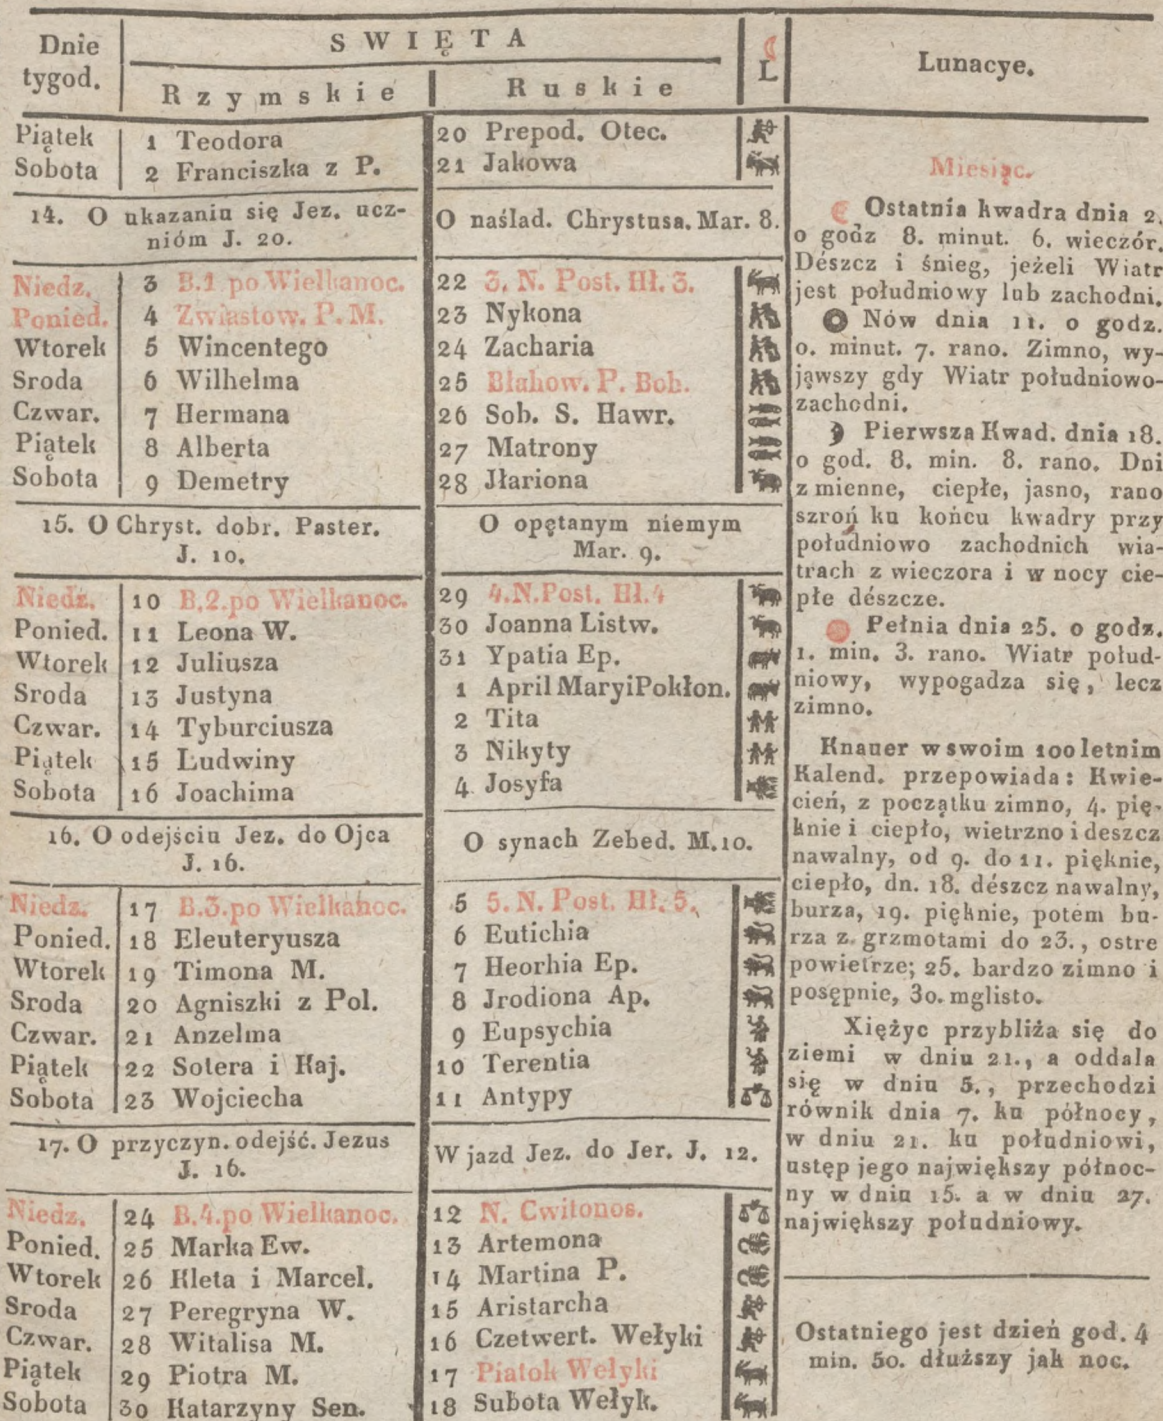 Dnie
tygod.
SWIĘTA
Rzymskie
Ruskie
L
Lunacye.
Piątek 1 Teodora 20 Prepod. Otec.
Sobota 2 Franciszka z P. 21 Jakowa
14. O ukazaniu się Jez. ucz-
nióm J. 20.
O naślad. Chrystusa. Mar. 8.
Niedz. 3 B.1 po Wielkanoc. 22 3. N. Post. Hł. 3.
Ponied. 4 Zwiastow. P. M. 23 Nykona
Wtorek 5 Wincentego 24 Zacharia
Sroda 6 Wilhelma 25 Błahow. P. Boh.
Czwar. 7 Hermana 26 Sob. S. Hawr.
Piątek 8 Alberta 27 Matrony
Sobota 9 Demetry 28 Jłariona
15. O Chryst. dobr. Paster.
J. 10.
O opętanym niemym
Mar. 9.
Niedz. 10 B.2.po Wielkanoc. 29 4.N.Post. Hł.4
Ponied. 11 Leona W. 30 Joanna Listw.
Wtorek 12 Juliusza 31 Ypatia Ep.
Sroda 13 Justyna 1 April MaryiPokłon.
Czwar. 14 Tyburciusza 2 Tita
Piątek 15 Ludwiny 3 Nikyty
Sobota 16 Joachima 4 Josyfa
16. O odejściu Jez. do Ojca
J. 16.
O synach Zebed. M.10.
Niedz. 17 B.3.po Wielkanoc. 5 5. N. Post. Hł. 5.
Ponied. 18 Eleuteryusza 6 Eutichia
Wtorek 19 Timona M. 7 Heorhia Ep.
Sroda 20 Agniszki z Pol. 8 Jrodiona Ap.
Czwar. 21 Anzelma 9 Eupsychia
Piątek 22 Sotera i Kaj. 10 Terentia
Sobota 23 Wojciecha 11 Antypy
17. O przyczyn. odejść. Jezus
J. 16.
Wjazd Jez. do Jer. J. 12.
Niedz. 24 B.4.po Wielkanoc. 12 N. Cwitonos.
Ponied. 25 Marka Ew. 13 Artemona
Wtorek 26 Kleta i Marcel. 14 Martina P.
Sroda 27 Peregryna W. 15 Aristarcha
Czwar. 28 Witalisa M. 16 Czetwert. Wełyki
Piątek 29 Piotra M. 17 Piatok Wełyki
Sobota 30 Katarzyny Sen. 18 Subota Wełyk.
Miesiąc.
Ostatnia kwadra dnia 2.
o godz 8. minut. 6. wieczór.
Désczcz i śnieg, jeżeli Wiatr
jest południowy lub zachodni.
Nów dnia 11. o godz.
0. minut. 7. rano. Zimno, wy-
jąwszy gdy Wiatr południowo-
zachodni.
Pierwsza Kwad. dnia 18.
o god. 8. min. 8. rano. Dni
zmienne, ciepłe, jasno, rano
szroń ku końcu kwadry przy
południowo zachodnich wia-
trach z wieczora i w nocy cie-
płe dészcze.
Pełnia dnia 25. o godz.
1. min. 3. rano. Wiatr połud-
niowy, wypogadza się, lecz
zimno.
Knauer w swoim 100 letnim
Kalend. przepowiada: Kwie-
cień, z początku zimno, 4. pię-
knie i ciepło, wietrzno i deszcz
nawalny, od 9. do 11. pięknie,
ciepło, dn. 18. dészcz nawalny,
burza, 19. pięknie, potem bu-
rza z grzmotami do 23., ostre
powietrze; 25. bardzo zimno i
posępnie, 30. mglisto.
Xiężyc przybliża się do
ziemi w dniu 21., a oddala
się w dniu 5., przechodzi
równik dnia 7. ku północy,
w dniu 21. ku południowi,
ustęp jego największy północ-
ny w dniu 15. a w dniu 27.
największy południowy.
Ostatniego jest dzień god. 4
min. 50. dłuższy jak noc.